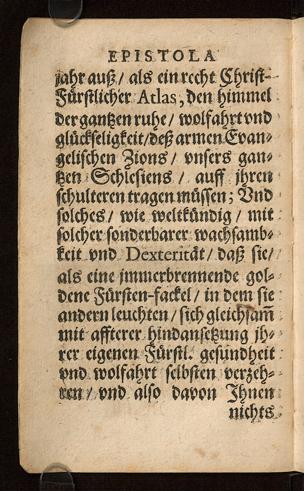 EPISTOLA
jahr auß / als ein recht Christ-
Fürstlicher Atlas, den himmel
der gantzen ruhe / wolfahrt vnd
glückseligkeit / deß armen Evan-
gelischen Zions / vnsers gan-
tzen Schlesiens / auff jhren
schulteren tragen müssen; Vnd
solches / wie weltkündig / mit
solcher sonderbarer wachsamb-
keit vnd Dexterität / daß sie /
als eine jmmerbrennende gol-
dene Fürsten-fackel / in dem sie
andern leuchten / sich gleichsam
mit affterer hindansetzung jh-
rer eigenen Fürstl. gesundheit
vnd wolfahrt selbsten verzeh-
ren / vnd also davon Jhnen
nichts